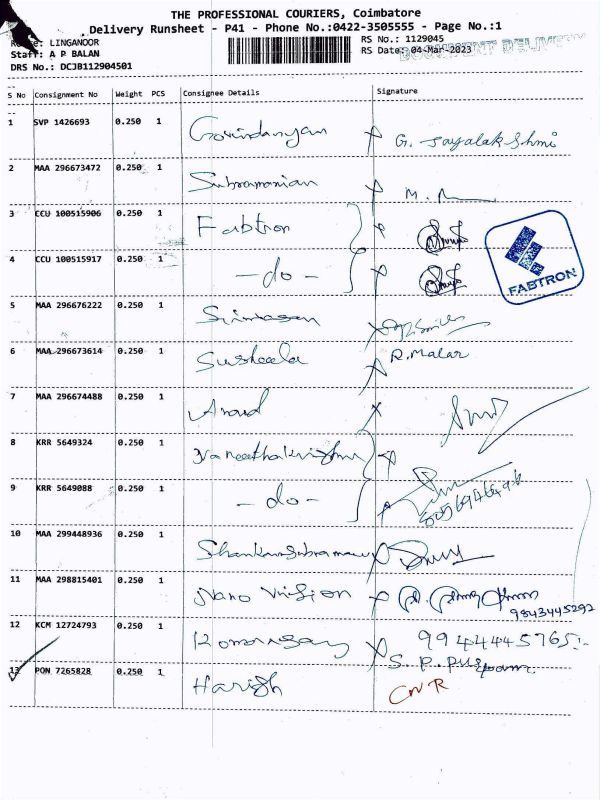 THE PROFESSIONAL COURIERS, Coimbatore
Delivery Runsheet - P41 - Phone No.:0422-3505555 - Page No.:1
LINGANOOR
RS No.: 1129045
DOCUMENT DELIVERY
Staff: A P BALAN
RS Date: 04-Mar-2023
DRS No.: DCJB112904501
S No Consignment No Weight PCS Consignee Details Signature
1 SVP 1426693 0.250 1 G. Jayalakshmi
2 MAA 296673472 0.250 1 Subramanian
3 CCU 100515906 0.250 1 Fabtron
FABTRON
4 CCU 100515917 0.250 1 - do -
5 MAA 296676222 0.250 1
6 MAA 296673614 0.250 1 Susheela R. Malar
7 MAA 296674488 0.250 1 Anand
8 KRR 5649324 0.250 1
9 KRR 5649088 0.250 1 - do -
10 MAA 299448936 0.250 1
11 MAA 298815401 0.250 1 Nano Vision
9843445292
12 KCM 12724793 0.250 1 9944445765
S. P. Pushpam
13 PON 7265828 0.250 1 Harish